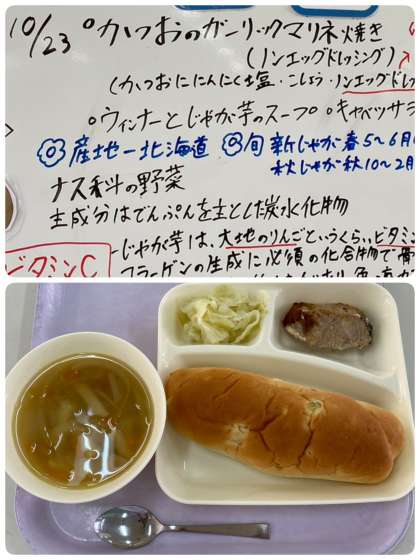 10/23 °かつおのガーリックマリネ焼き
(ノンエッグドレッシング)
(かつおににんにく塩・こしょう・ノンエッグドレッ
°ウィンナーとじゃが芋のスープ° キャベツサラ
産地-北海道 旬 新じゃが春5~6月
秋じゃが秋10~2月
ナス科の野菜
主成分はでんぷんを主とした炭水化物
ビタミンC
じゃが芋は、大地のりんごというくらいビタミン
コラーゲンの生成に必須の化合物で骨